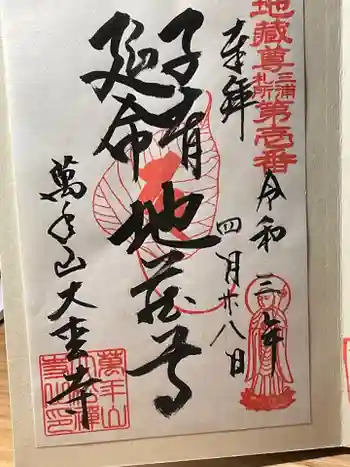 地蔵尊三浦札所第壱番
奉拝
令和三年
四月廿八日
子育
延命
地蔵尊
萬年山大寺
萬年山